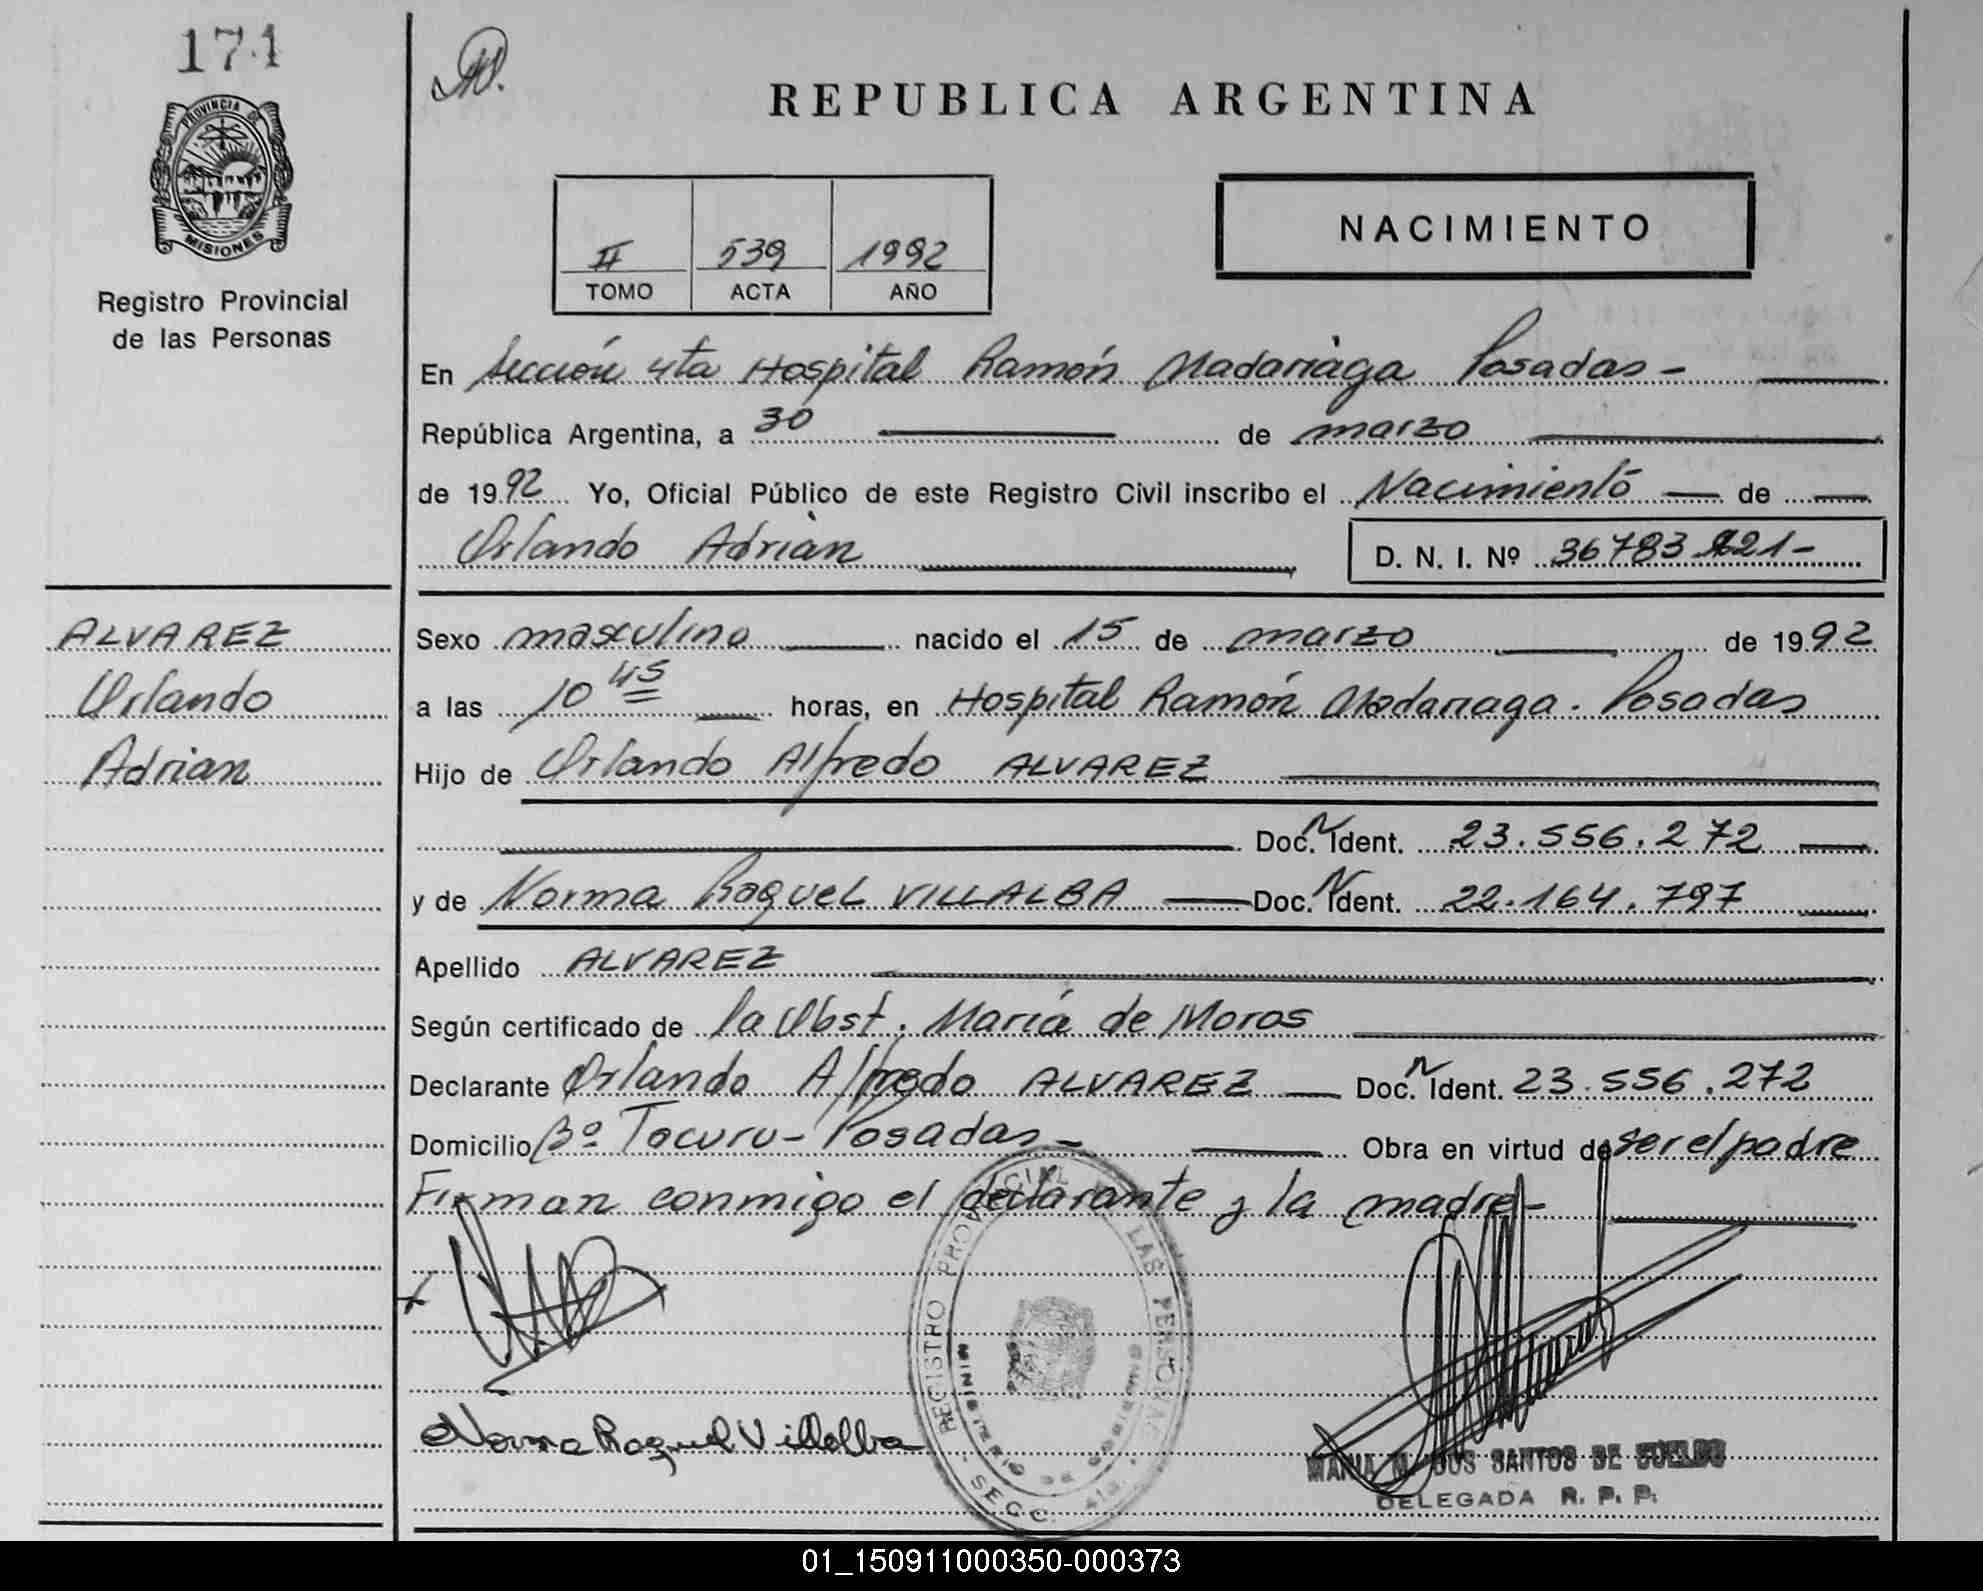 174
REPUBLICA ARGENTINA
PROVINCIA DE
MISIONES
Registro Provincial
de las Personas
II 539 1992
TOMO ACTA AÑO
NACIMIENTO
En Sección 4ta Hospital Ramón Madariaga Posadas -
República Argentina, a 30 de marzo
de 1992 Yo, Oficial Público de este Registro Civil inscribo el Nacimiento de
Orlando Adrián
D. N. I. Nº 36783
ALVAREZ
Orlando
Adrian
Sexo masculino nacido el 15 de marzo de 1992
a las 10 45 horas, en Hospital Ramón Madariaga. Posadas
Hijo de Orlando Alfredo ALVAREZ
Doc. N Ident. 23.556.272
y de Norma Raquel VILLALBA Doc. N Ident. 22.164.797
Apellido ALVAREZ
Según certificado de la Obst. María de Moros
Declarante Orlando Alfredo ALVAREZ Doc. N Ident. 23.556.272
Domicilio Bº Tacuru - Posadas - Obra en virtud de ser el padre
Firman conmigo el declarante y la madre -
REGISTRO PROVINCIAL DE LAS PERSONAS
MINISTERIO DE GOBIERNO
SECC. 4ta.
Norma Raquel Villalba
MARIA M. DOS SANTOS DE SUELDO
DELEGADA R. P. P.
01_150911000350-000373